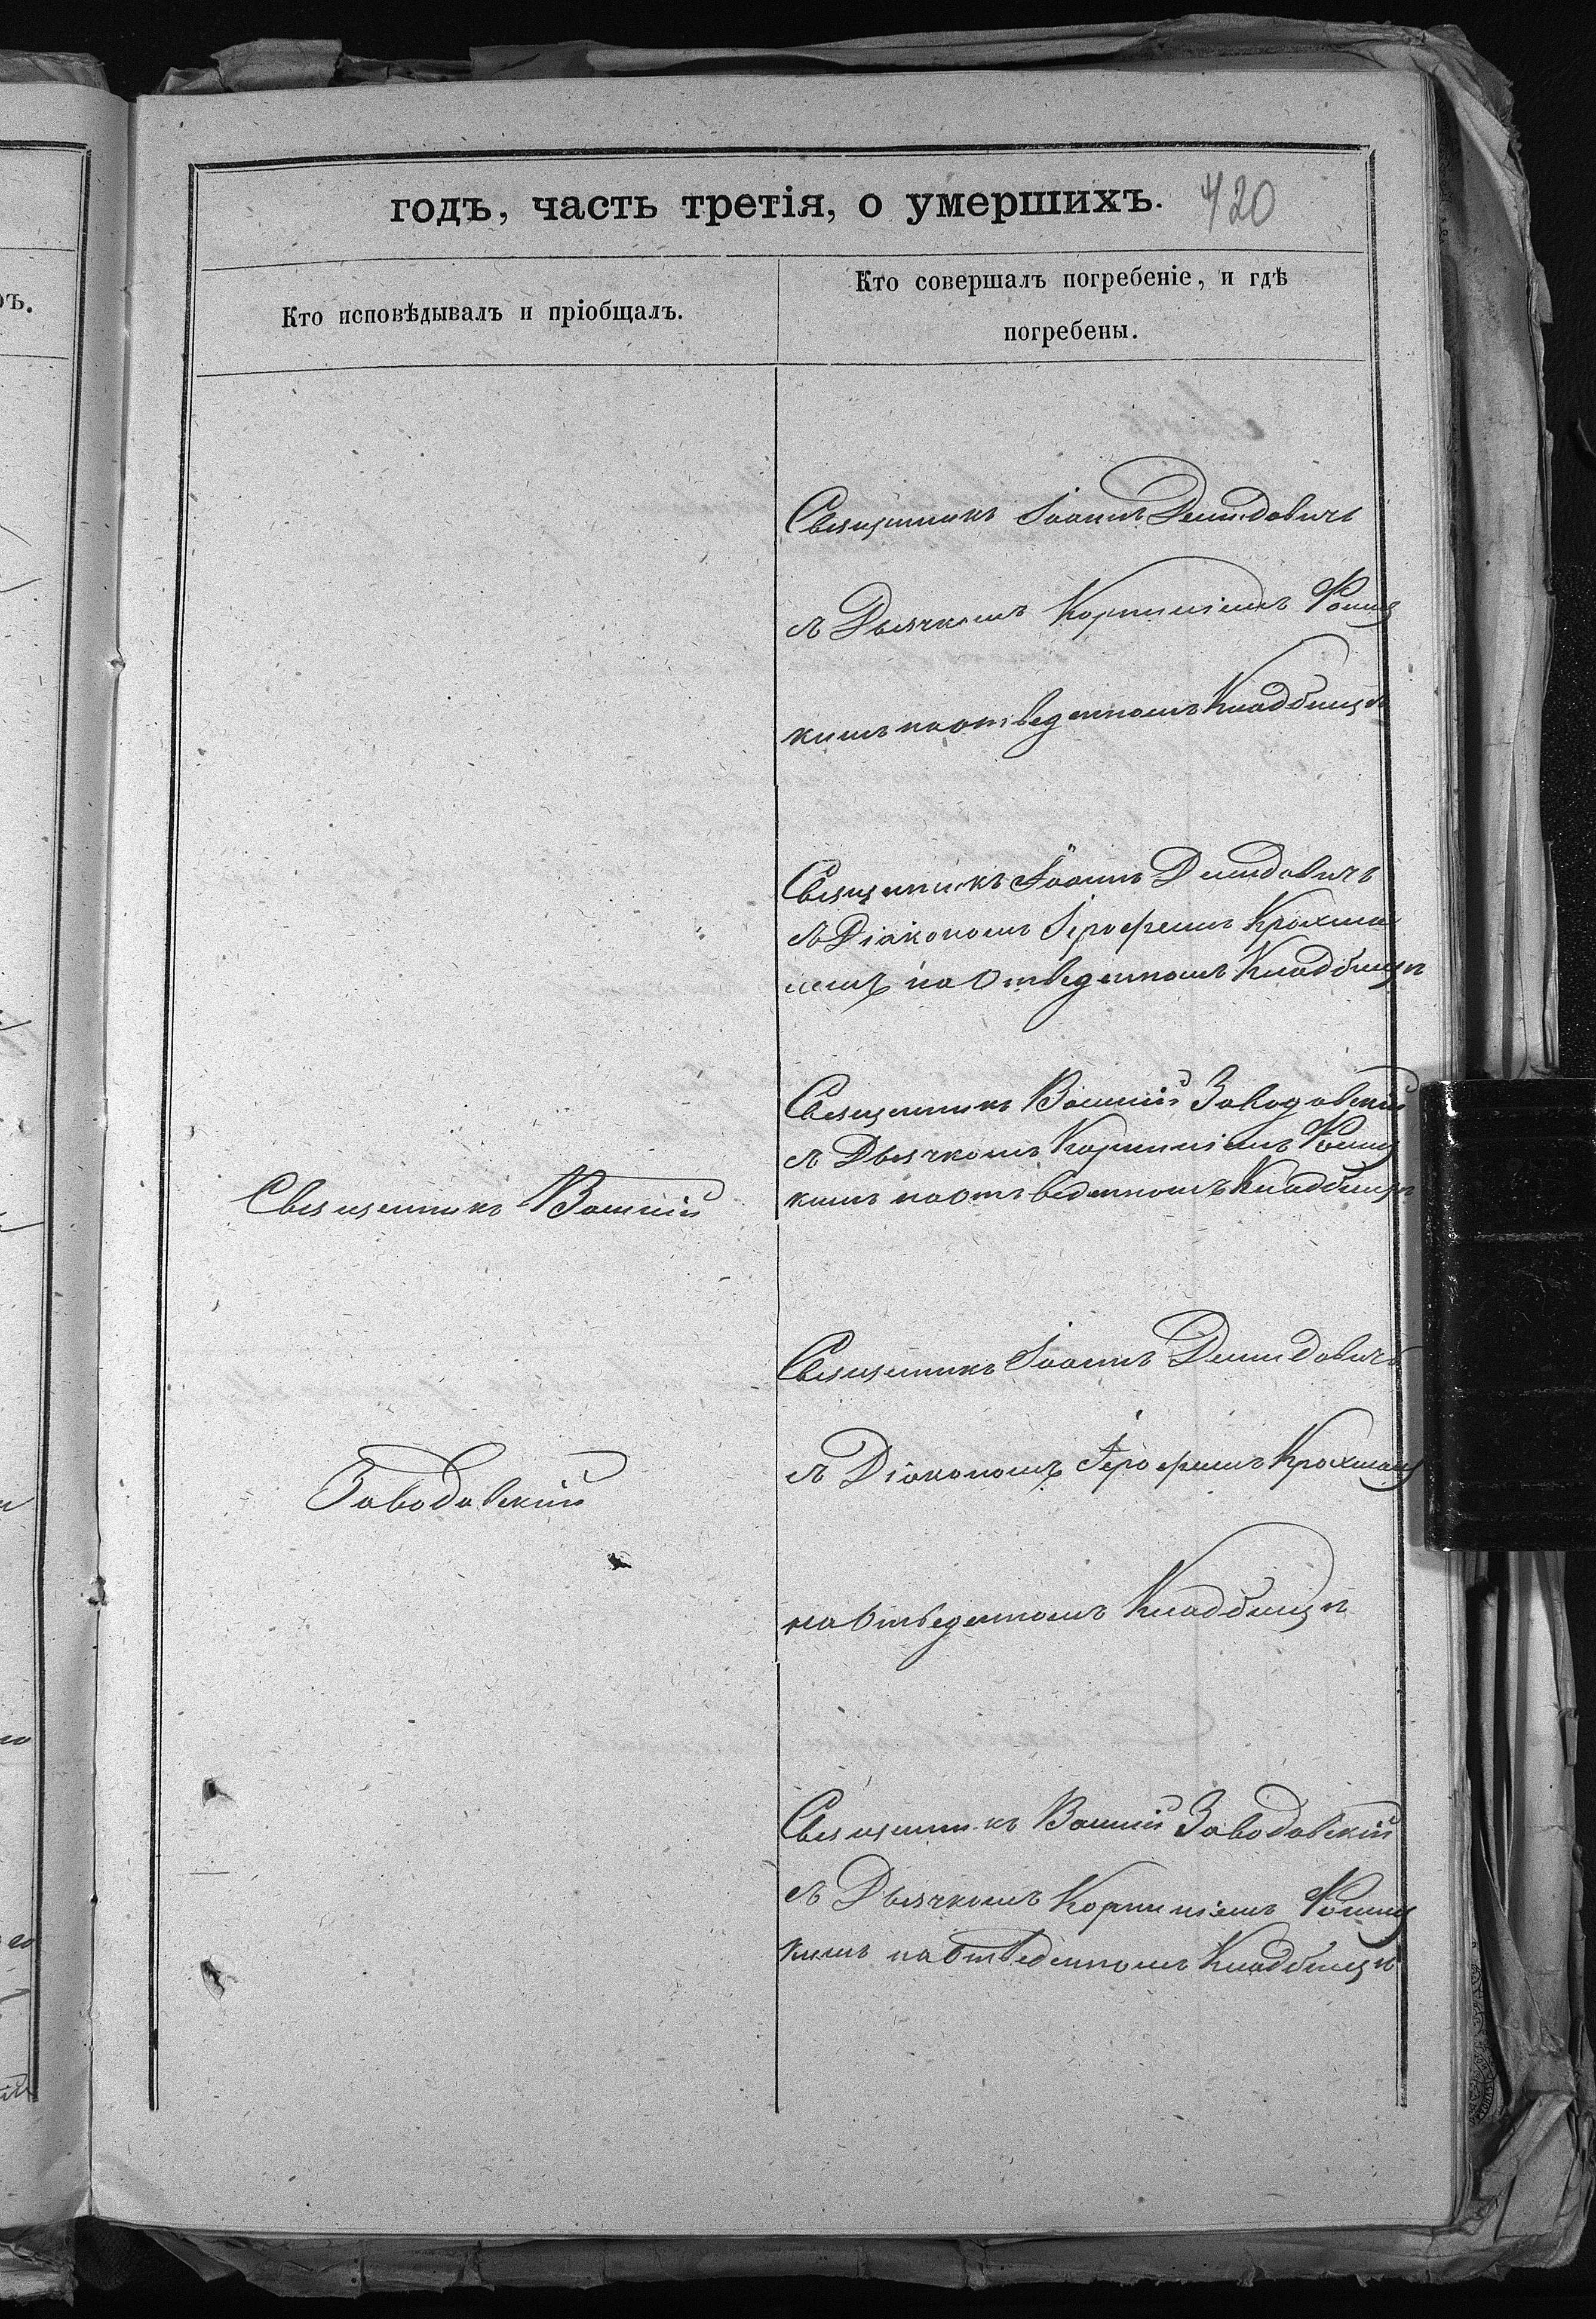 годъ, часть третія, о умершихъ. 420
Кто исповѣдывалъ и пріобщалъ.
Кто совершалъ погребеніе, и гдѣ
погребены.
Священникъ Іоаннъ Демидовичъ
съ Дьячкомъ Корниліемъ
кимъ на отведенномъ Кладбищѣ
Священникъ Іоаннъ Демидовичъ
съ Діакономъ Ірофеемъ
на Отведенномъ Кладбищѣ
Священникъ Василій Заводовскій
съ Дьячкомъ Корниліемъ
кимъ на отведенномъ Кладбищѣ
Священникъ Василій
Заводовскій
Священникъ Іоаннъ Демидовичъ
съ Діакономъ Ірофеемъ
на Отведенномъ Кладбищѣ
Священникъ Василій Заводовскій
съ Дьячкомъ Корниліемъ
кимъ на Отведенномъ Кладбищѣ
ръ.